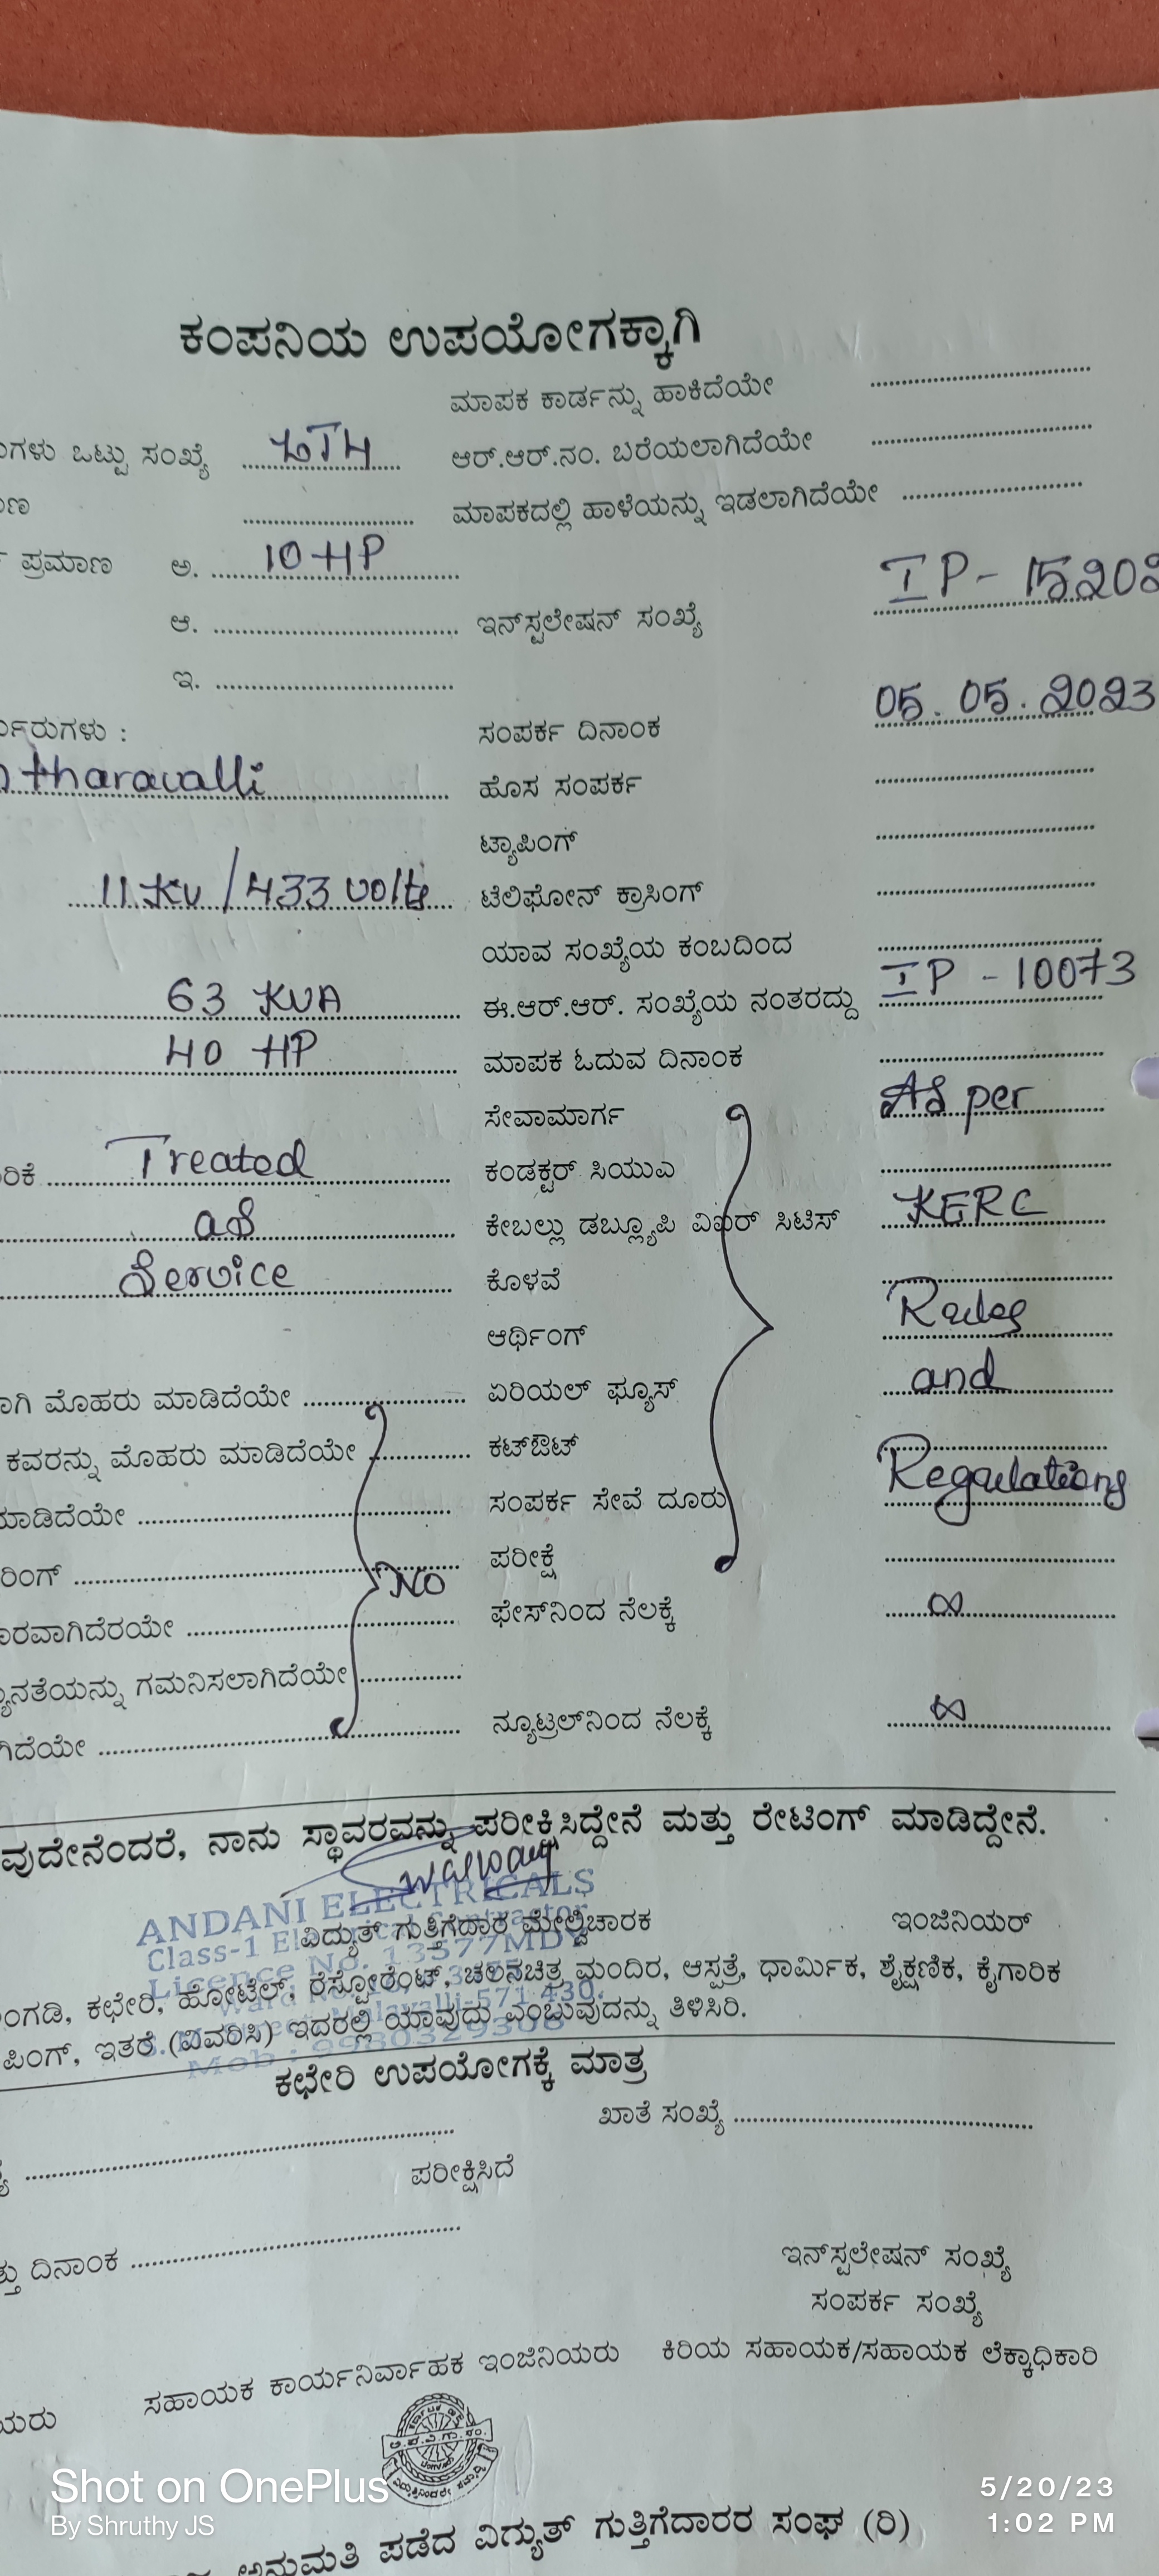 ಕಂಪನಿಯ ಉಪಯೋಗಕ್ಕಾಗಿ
ಮಾಪಕ ಕಾರ್ಡನ್ನು ಹಾಕಿದೆಯೇ
ಗಳು ಒಟ್ಟು ಸಂಖ್ಯೆ ಆರ್.ಆರ್.ನಂ. ಬರೆಯಲಾಗಿದೆಯೇ
ಮಾಪಕದಲ್ಲಿ ಹಾಳೆಯನ್ನು ಇಡಲಾಗಿದೆಯೇ
ಪ್ರಮಾಣ ಅ. 10 HP
ಆ. ಇನ್‌ಸ್ಟಲೇಷನ್ ಸಂಖ್ಯೆ IP - 15202
ಇ.
ರುಗಳು : ಸಂಪರ್ಕ ದಿನಾಂಕ 05.05.2023
tharavalli ಹೊಸ ಸಂಪರ್ಕ
ಟ್ಯಾಪಿಂಗ್
11 KV / 433 Volts ಟೆಲಿಫೋನ್ ಕ್ರಾಸಿಂಗ್
ಯಾವ ಸಂಖ್ಯೆಯ ಕಂಬದಿಂದ
63 KVA ಈ.ಆರ್.ಆರ್. ಸಂಖ್ಯೆಯ ನಂತರದ್ದು IP - 10073
40 HP ಮಾಪಕ ಓದುವ ದಿನಾಂಕ
ಸೇವಾಮಾರ್ಗ As per
ರಿಕೆ Treated ಕಂಡಕ್ಟರ್ ಸಿಯುಎ
as ಕೇಬಲ್ಲು ಡಬ್ಲ್ಯೂಪಿ ವಿಐರ್ ಸಿಟಿಸ್ KERC
Service ಕೊಳವೆ
ಆರ್ಥಿಂಗ್ Rules
ಾಗಿ ಮೊಹರು ಮಾಡಿದೆಯೇ ಏರಿಯಲ್ ಫ್ಯೂಸ್ and
ಕವರನ್ನು ಮೊಹರು ಮಾಡಿದೆಯೇ ಕಟ್‌ಔಟ್
ಮಾಡಿದೆಯೇ ಸಂಪರ್ಕ ಸೇವೆ ದೂರು Regulations
ರಿಂಗ್ No ಪರೀಕ್ಷೆ
ಾರವಾಗಿದೆರಯೇ ಫೇಸ್‌ನಿಂದ ನೆಲಕ್ಕೆ ∞
ನತೆಯನ್ನು ಗಮನಿಸಲಾಗಿದೆಯೇ
ಗಿದೆಯೇ ನ್ಯೂಟ್ರಲ್‌ನಿಂದ ನೆಲಕ್ಕೆ ∞
ವುದೇನೆಂದರೆ, ನಾನು ಸ್ಥಾವರವನ್ನು ಪರೀಕ್ಷಿಸಿದ್ದೇನೆ ಮತ್ತು ರೇಟಿಂಗ್ ಮಾಡಿದ್ದೇನೆ.
ANDANI ELECTRICALS
ವಿದ್ಯುತ್ ಗುತ್ತಿಗೆದಾರ ಮೇಲ್ವಿಚಾರಕ ಇಂಜಿನಿಯರ್
Class-1
Licence No. 13577MDY
ಂಗಡಿ, ಕಛೇರಿ, ಹೋಟೆಲ್, ರೆಸ್ಟೋರೆಂಟ್, ಚಲನಚಿತ್ರ ಮಂದಿರ, ಆಸ್ಪತ್ರೆ, ಧಾರ್ಮಿಕ, ಶೈಕ್ಷಣಿಕ, ಕೈಗಾರಿಕ
ಪಿಂಗ್, ಇತರೆ (ವಿವರಿಸಿ) ಇದರಲ್ಲಿ ಯಾವುದು ಎಂಬುವುದನ್ನು ತಿಳಿಸಿರಿ.
ಕಛೇರಿ ಉಪಯೋಗಕ್ಕೆ ಮಾತ್ರ
ಖಾತೆ ಸಂಖ್ಯೆ
ಪರೀಕ್ಷಿಸಿದೆ
ದಿನಾಂಕ
ಇನ್‌ಸ್ಟಲೇಷನ್ ಸಂಖ್ಯೆ
ಸಂಪರ್ಕ ಸಂಖ್ಯೆ
ಯರು ಸಹಾಯಕ ಕಾರ್ಯನಿರ್ವಾಹಕ ಇಂಜಿನಿಯರು ಕಿರಿಯ ಸಹಾಯಕ/ಸಹಾಯಕ ಲೆಕ್ಕಾಧಿಕಾರಿ
ಅನುಮತಿ ಪಡೆದ ವಿದ್ಯುತ್ ಗುತ್ತಿಗೆದಾರರ ಸಂಘ (ರಿ)
Shot on OnePlus
By Shruthy JS
5/20/23
1:02 PM